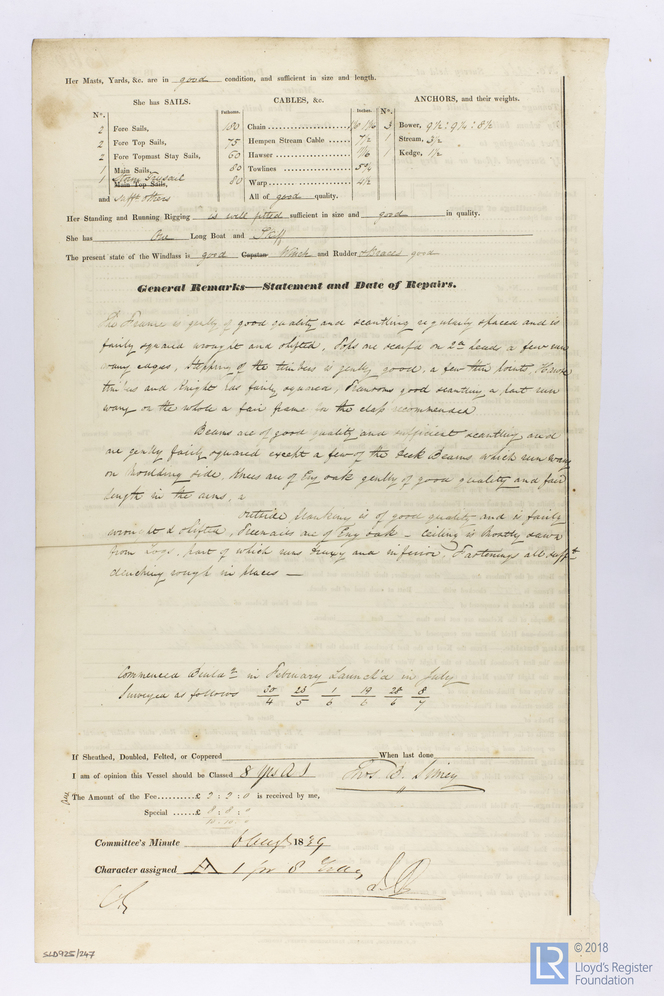 Her Masts, Yards, &c. are in good condition, and sufficient in size and length.
She has SAILS.
N°.
2 Fore Sails,
2 Fore Top Sails,
2 Fore Topmast Stay Sails,
1 Main Sails,
1 Main Top Sails,
and others
CABLES, &c.
Fathoms. Inches.
Chain
75 Hempen Stream Cable 7½
Hawser
80 Towlines
80 Warp 4½
All of good quality.
ANCHORS, and their weights.
N°.
3 Bower, 9½ : 9¼ : 8½
1 Stream, 3½
1 Kedge, 1½
Her Standing and Running Rigging is well fitted sufficient in size and good in quality.
She has One Long Boat and Skiff
The present state of the Windlass is good Capstan Winch and Rudder Braces good
General Remarks—Statement and Date of Repairs.
The Frame is genlly of good quality and scantling regularly spaced and is
fairly squared wrought and shifted, Tops are scarfd on 2nd head a few
edges, of the timbers is genlly good, a few thin points, Hawse
timbers and Knight fairly squared, good scantling a part run
wany on the whole a fair frame for the class recommended
Beams are of good quality and sufficient scantling and
are genlly fairly squared except a few of the Deck Beams which run wany
on moulding side. Knees are of Eng oak genlly of good quality and fair
length in the arms,
outside Planking is of good quality and is fairly
wrought & shifted, Treenails are of Eng oak – Ceiling is mostly sawn
from Logs, part of which runs and inferior, Fastenings all suffт
clenching rough in places —
Commenced in February Launch'd in July
Surveyed as follows 30/4 23/5 1/6 19/6 28/6 8/7
If Sheathed, Doubled, Felted, or Coppered When last done
I am of opinion this Vessel should be Classed 8 yrs A 1
The Amount of the Fee..........£ 2 : 2 : 0 is received by me,
Special ......£ 8 : 8 : 0
10 : 10 : 0
Committee's Minute 6 Augt 1839
Character assigned A 1 for 8 Years
SLD925/247
LR
© 2018
Lloyd's Register
Foundation